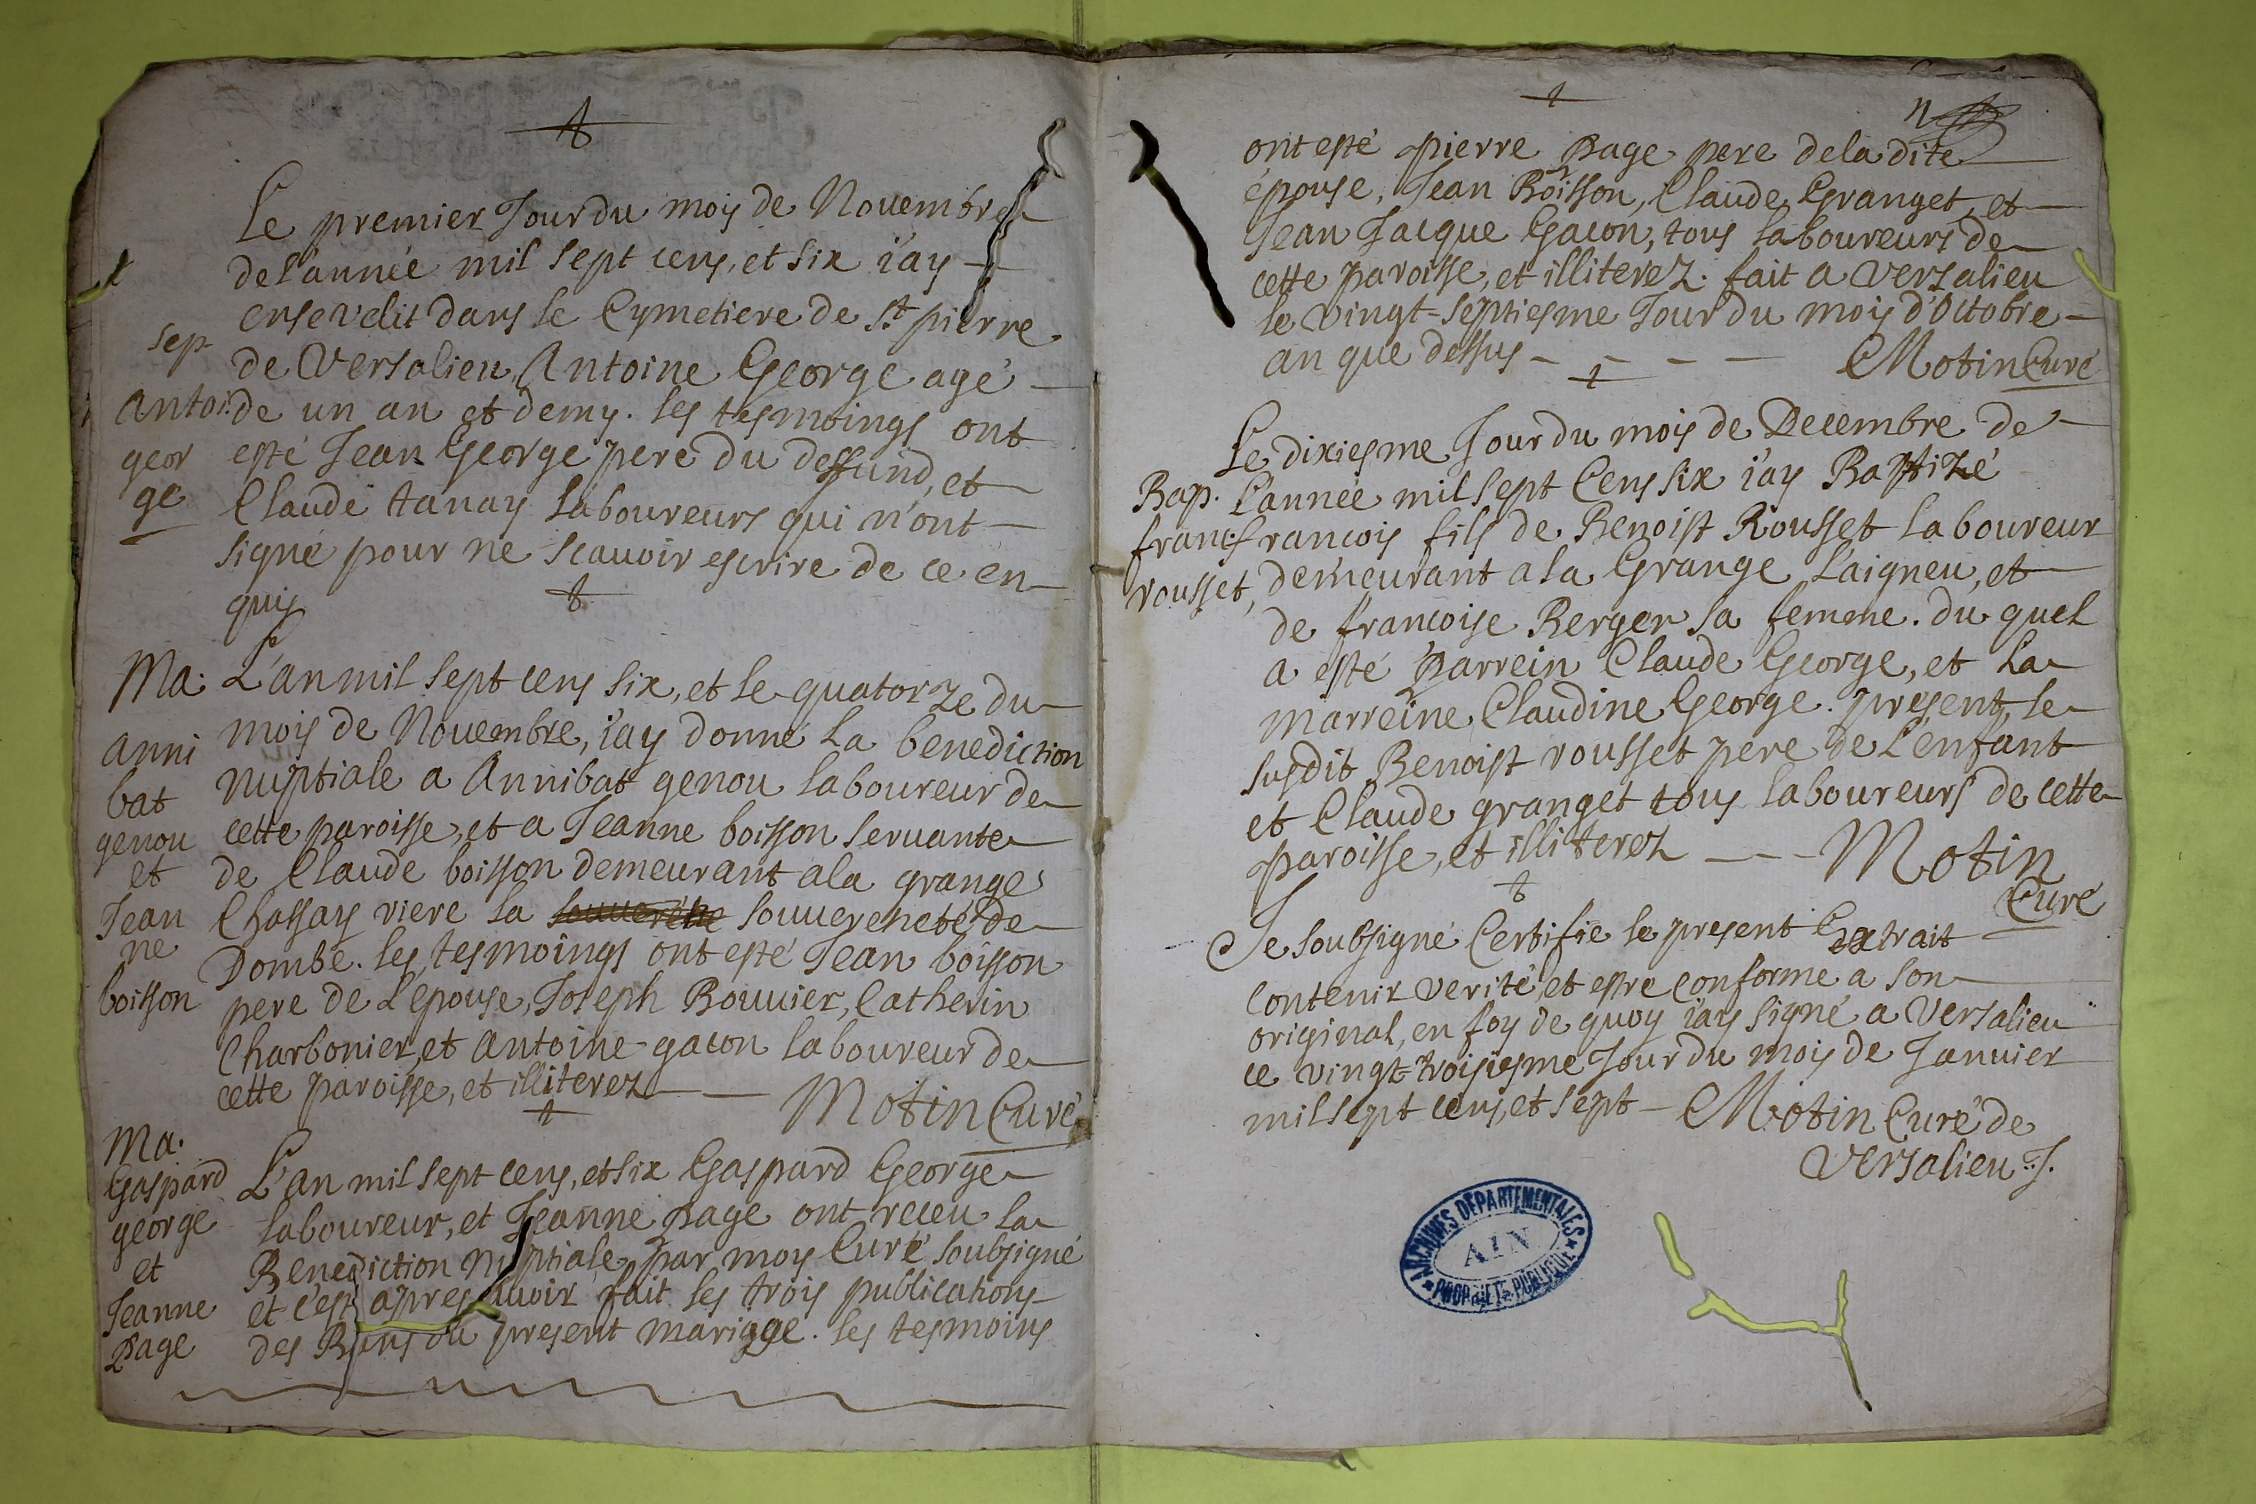 Le premier Jour du mois de Novembre
de l'année mil sept cens, et six i'ay
ensevelit dans le Cymetiere de St pierre
de Versalieu, Antoine George agé
de un an et demy. les tesmoings ont
esté Jean George pere du deffund, et
Claude tanay laboureurs qui n'ont
signé pour ne scavoir escrire de ce en-
quis
sep
antoi:
geor
ge
L'an mil sept cens six, et le quatorze du
mois de Novembre, i'ay donné la benediction
nuptiale a Annibat genou laboureur de
cette paroisse, et a Jeanne boisson servante
de Claude boisson demeurant a la grange
Chassay riere la souvereneté de
Dombe. les tesmoings ont esté Jean boisson
pere de L'epouse, Joseph Bouvier, Catherin
Charbonier, et Antoine gacon laboureur de
cette paroisse, et illiterez
Motin Curé
Ma:
anni
bat
genou
et
Jean
ne
boisson
L'an mil sept cens, et six Gaspard George
laboureur, et Jeanne page ont receu la
Benediction nuptiale, par moy Curé soubsigné
et c'est apres avoir fait les trois publications
des Bans du present mariage. les tesmoins
Ma.
Gaspard
george
et
Jeanne
page
ont esté pierre page pere de la dite
épouse, Jean Boisson, Claude Granget, et
Jean Jacque Gacon, tous laboureurs de
cette paroisse, et illiterez. fait a Versalieu
le vingt=septiesme Jour du mois d'Octobre
an que dessus
Motin Curé
Le dixiesme Jour du mois de Decembre de
L'année mil sept Cens six i'ay Baptizé
francois fils de Benoist Rousset laboureur
demeurant a la Grange Laigneu, et
de francoise Berger sa femme. du quel
a esté parrein Claude George, et La
marreine Claudine George. present, le
susdit Benoist rousset pere de L'enfant
et Claude granget tous laboureurs de cette
paroisse, et illiterez
Motin
Curé
Bap.
franc:
rousset,
Je soubsigné Certifie le present Extrait
Contenir verité, et estre conforme a son
original, en foy de quoy i'ay signé a Versalieu
ce vingt=troisiesme Jour du mois de Janvier
mil sept cens, et sept
Motin Curé de
Versalieu
ARCHIVES DÉPARTEMENTALES
AIN
PROPRIÉTÉ PUBLIQUE